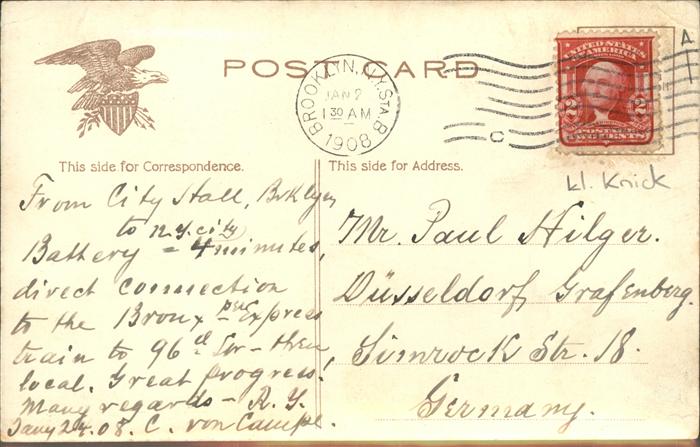 POST CARD
BROOKLYN, N.Y. STA. B
JAN 2
1 30 AM
1908
C
UNITED STATES OF AMERICA
2 2
POSTAGE
TWO CENTS
A
kl. Knick
This side for Correspondence.
From City Hall, Brklyn
to N.Y. city
Battery = 4 minutes,
direct connection
to the Bronx per Express
train to 96th Str - then
local. Great progress!
Many regards -
Jany 2d. 08. C. von Campe.
This side for Address.
Mr. Paul Hilger.
Düsseldorf, Grafenberg
Simrock Str. 18.
Germany.